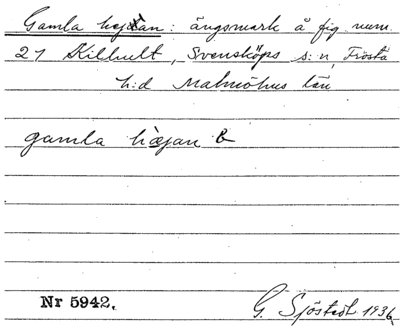 Gamla hejan: ängsmark å fig. num.
21 Killhult, Svensköps s:n, Frosta
h:d Malmöhus län
gamla hæjan B
Nr 5942.
G. Sjöstedt 1936